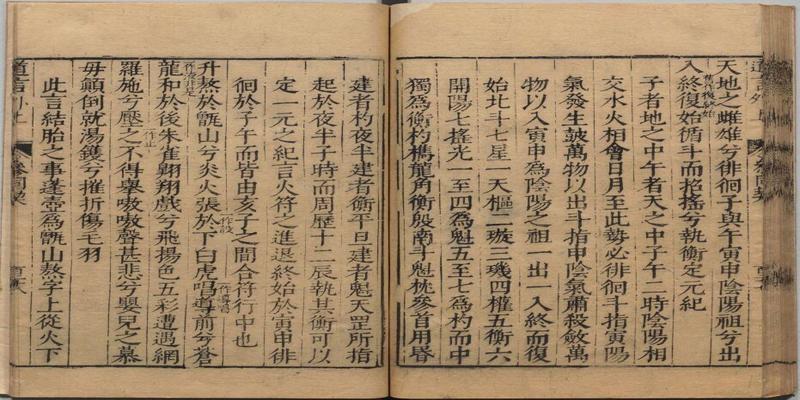 天地之雌雄兮徘徊子與午寅申陰陽祖兮出
入終復始循斗而招搖兮執衡定元紀
子者地之中午者天之中子午二時陰陽相
交水火相會日月至此勢必徘徊斗指寅陽
氣發生鼓萬物以出斗指申陰氣肅殺斂萬
物以入寅申為陰陽之祖一出一入終而復
始北斗七星一天樞二璇三璣四權五衡六
開陽七搖光一至四為魁五至七為杓而中
獨為衡杓攜龍角衡殷南斗魁枕參首用昏
建者杓夜半建者衡平旦建者魁天罡所指
起於夜半子時而周歷十二辰執其衡可以
定一元之紀言火符之進退終始於寅申徘
徊於子午而皆由亥子之間合符行中也
升熬於甑山兮炎火張於下白虎唱導前兮蒼
龍和於後朱雀翱翔戲兮飛揚色五彩遭遇網
羅施兮壓之不得舉嗷嗷聲甚悲兮嬰兒之慕
母顛倒就湯鑊兮摧折傷毛羽
此言結胎之事蓬壺為甑山熬字上從火下